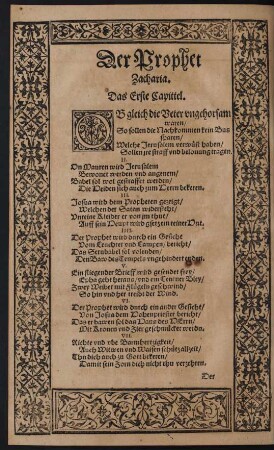 Der Prophet
Zacharia.
Das Erste Capittel.
OB gleich die Veter vngehorsam
waren/
So sollen die Nachkommen kein Bus
sparen/
Welche Jerusalem verwüst haben/
Sollen jre straff vnd belonung tragen.
II.
On Mauren wird Jerusalem
Bewonet werden vnd angenem/
Babel sol wol gestraffet werden/
Die Heiden sich auch zum HErrn bekeren.
III.
Josua wird dem Propheten gezeigt/
Welchem der Satan widerficht/
Vnreine Kleider er von jm thut/
Auff sein Heupt wird gesetzt reiner Hut.
IIII.
Der Prophet wird durch ein Gesicht
Vom Leuchter vnd Lampen/ bericht/
Das Serubabel sol volenden/
Den Baw des Tempels vngehindert enden.
V.
Ein fliegender Brieff wird gesendet frey/
Epha geht heraus/ vnd ein Centner Bley/
Zwey Weiber mit Flügeln geschwind/
So hin vnd her treibt der Wind.
VI.
Der Prophet wird durch ein ander Gesicht/
Von Josua dem Hohenpriester bericht/
Das er bawen sol das Haus des HErrn/
Mit Kronen vnd Zier geschmücket werdn.
VII.
Richte vnd vbe Barmhertzigkeit/
Auch Witwen vnd Waisen schütz allzeit/
Thu dich auch zu Gott bekeren/
Damit sein Zorn dich nicht thu verzehren.
Der